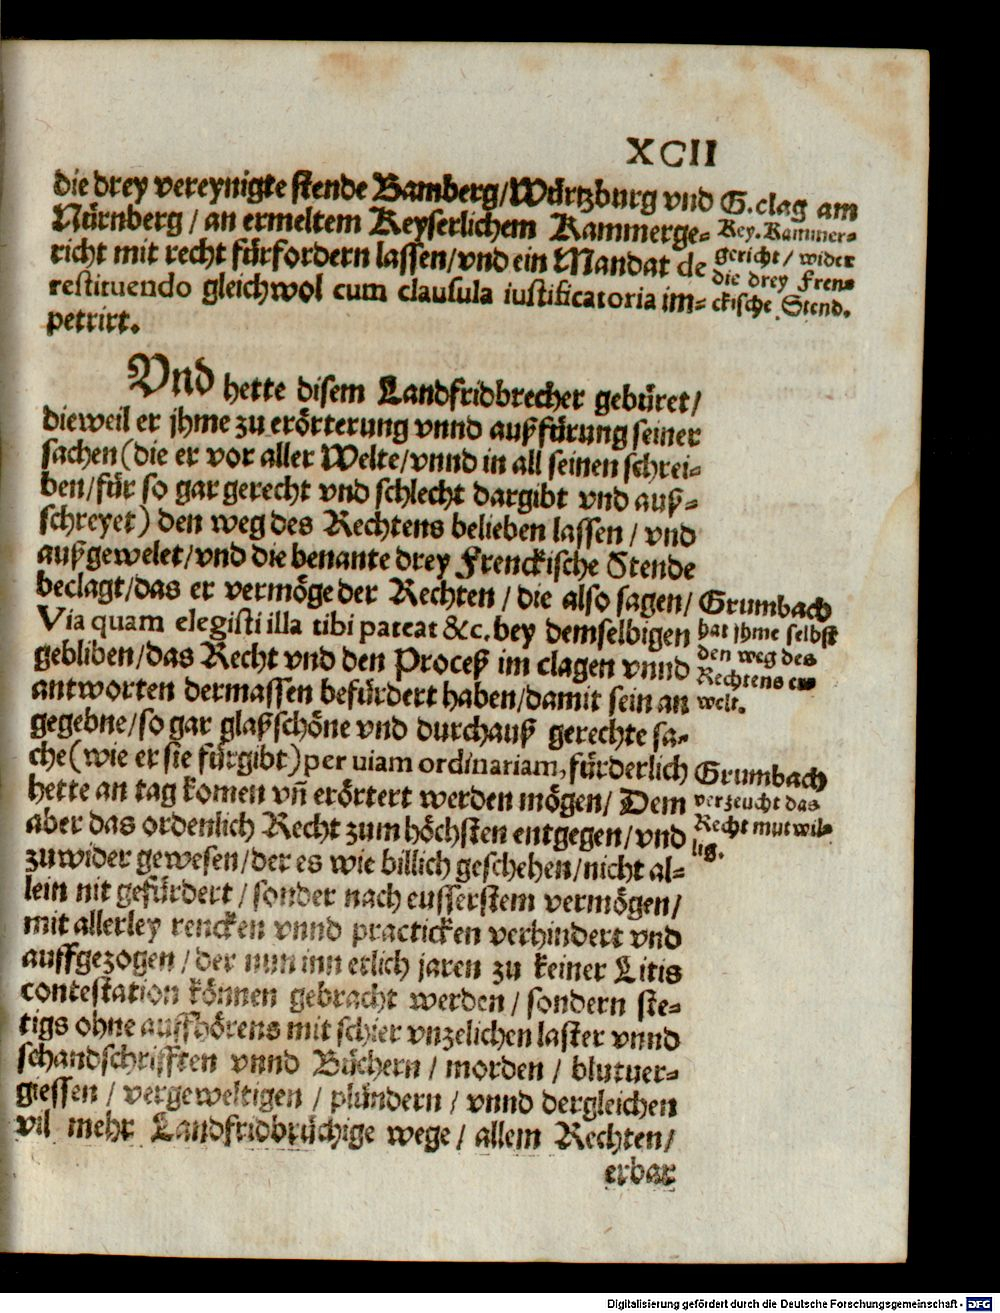 XCII
die drey vereynigte stende Bamberg/Würtzburg vnd
Nürnberg / an ermeltem Keyserlichem Kammerge-
richt mit recht fürfordern lassen/vnd ein Mandat de
restituendo gleichwol cum clausula iustificatoria im-
petrirt.
G. clag am
Key. Kammer-
gericht / wider
die drey Fren-
ckische Stend.
Vnd hette disem Landfridbrecher gebüret/
dieweil er jhme zu erörterung vnnd außfürung seiner
sachen (die er vor aller Welte/vnnd in all seinen schrei-
ben/für so gar gerecht vnd schlecht dargibt vnd auß-
schreyet) den weg des Rechtens belieben lassen / vnd
außgewelet/vnd die benante drey Frenckische Stende
beclagt/das er vermöge der Rechten / die also sagen/
Via quam elegisti illa tibi pateat &c. bey demselbigen
gebliben/das Recht vnd den Proceß im clagen vnnd
antworten dermassen befürdert haben/damit sein an
gegebne/so gar glaßschöne vnd durchauß gerechte sa-
che (wie er sie fürgibt) per uiam ordinariam, fürderlich
hette an tag komen vñ erörtert werden mögen/ Dem
aber das ordenlich Recht zum höchsten entgegen/vnd
zuwider gewesen/der es wie billich geschehen/nicht al-
lein nit gefürdert / sonder nach eusserstem vermögen/
mit allerley rencken vnnd practicken verhindert vnd
auffgezogen / der nun inn etlich jaren zu keiner Litis
contestation können gebracht werden / sondern ste-
tigs ohne auffhörens mit schier vnzelichen laster vnnd
schandschrifften vnnd Büchern / morden / blutuer-
giessen / vergeweltigen / plündern / vnnd dergleichen
vil mehr Landfridbrüchige wege / allem Rechten/
Grumbach
hat jhme selbst
den weg des
Rechtens er-
welt.
Grumbach
verzeucht das
Recht mutwil-
lig.
erbar
Digitalisierung gefördert durch die Deutsche Forschungsgemeinschaft - DFG